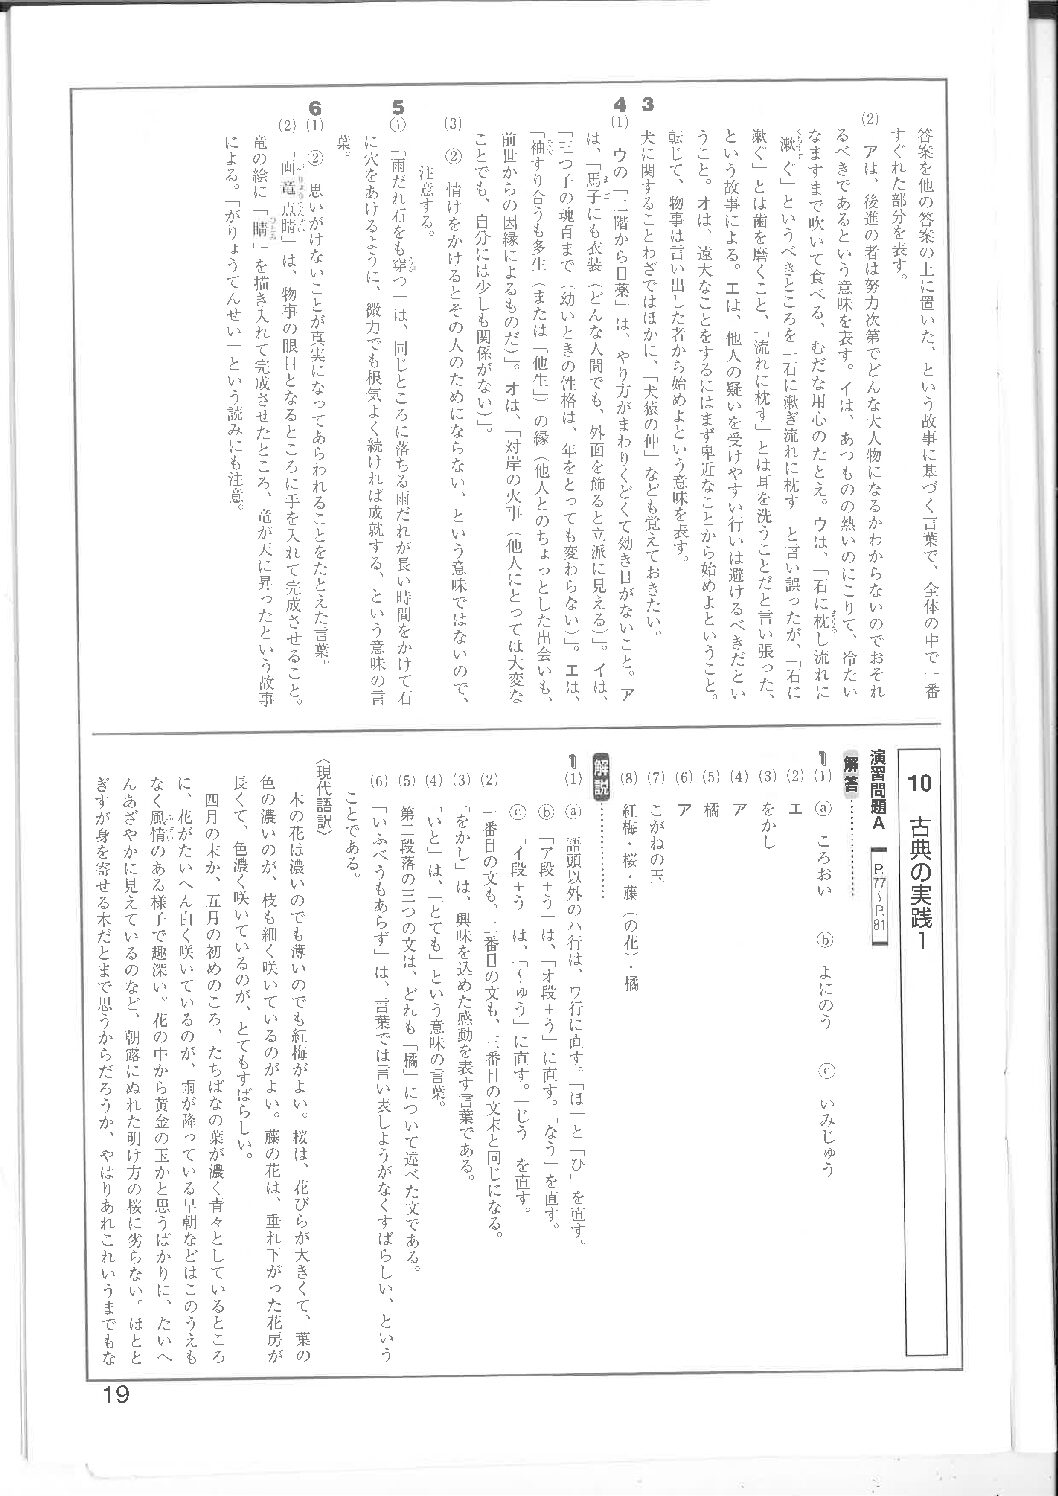 答案を他の答案の上に置いた、という故事に基づく言葉で、全体の中で一番
すぐれた部分を表す。
(2) アは、後進の者は努力次第でどんな大人物になるかわからないのでおそれ
るべきであるという意味を表す。イは、あつものの熱いのにこりて、冷たい
なますまで吹いて食べる、むだな用心のたとえ。ウは、「石に枕し流れに
漱ぐ」というべきところを「石に漱ぎ流れに枕す」と言い誤ったが、「石に
漱ぐ」とは歯を磨くこと、「流れに枕す」とは耳を洗うことだと言い張った、
という故事による。エは、他人の疑いを受けやすい行いは避けるべきだとい
うこと。オは、遠大なことをするにはまず卑近なことから始めよということ。
転じて、物事は言い出した者から始めよという意味を表す。
3 犬に関することわざではほかに、「犬猿の仲」なども覚えておきたい。
4 (1) ウの「二階から目薬」は、やり方がまわりくどくて効き目がないこと。ア
は、「馬子にも衣装（どんな人間でも、外面を飾ると立派に見える）」。イは、
「三つ子の魂百まで（幼いときの性格は、年をとっても変わらない）」。エは、
「袖すり合うも多生（または「他生」）の縁（他人とのちょっとした出会いも、
前世からの因縁によるものだ）」。オは、「対岸の火事（他人にとっては大変な
ことでも、自分には少しも関係がない）」。
(3) ② 情けをかけるとその人のためにならない、という意味ではないので、
注意する。
5 ① 「雨だれ石をも穿つ」は、同じところに落ちる雨だれが長い時間をかけて石
に穴をあけるように、微力でも根気よく続ければ成就する、という意味の言
葉。
6 (1) ② 思いがけないことが真実になってあらわれることをたとえた言葉。
(2) 「画竜点睛」は、物事の眼目となるところに手を入れて完成させること。
竜の絵に「睛」を描き入れて完成させたところ、竜が天に昇ったという故事
による。「がりょうてんせい」という読みにも注意。
10 古典の実践1
演習問題A P.77～P.81
解答
1 (1) ⓐ ころおい ⓑ よにのう ⓒ いみじゅう
(2) エ
(3) をかし
(4) ア
(5) 橘
(6) ア
(7) こがねの玉
(8) 紅梅・桜・藤（の花）・橘
解説
1 (1) ⓐ 語頭以外のハ行は、ワ行に直す。「ほ」と「ひ」を直す。
ⓑ 「ア段＋う」は、「オ段＋う」に直す。「なう」を直す。
ⓒ 「イ段＋う」は、「～ゅう」に直す。「じう」を直す。
(2) 一番目の文も、二番目の文も、三番目の文末と同じになる。
(3) 「をかし」は、興味を込めた感動を表す言葉である。
(4) 「いと」は、「とても」という意味の言葉。
(5) 第二段落の三つの文は、どれも「橘」について述べた文である。
(6) 「いふべうもあらず」は、言葉では言い表しようがなくすばらしい、という
ことである。
〈現代語訳〉
木の花は濃いのでも薄いのでも紅梅がよい。桜は、花びらが大きくて、葉の
色の濃いのが、枝も細く咲いているのがよい。藤の花は、垂れ下がった花房が
長くて、色濃く咲いているのが、とてもすばらしい。
四月の末か、五月の初めのころ、たちばなの葉が濃く青々としているところ
に、花がたいへん白く咲いているのが、雨が降っている早朝などはこのうえも
なく風情のある様子で趣深い。花の中から黄金の玉かと思うばかりに、たいへ
んあざやかに見えているのなど、朝露にぬれた明け方の桜に劣らない。ほとと
ぎすが身を寄せる木だとまで思うからだろうか、やはりあれこれいうまでもな
19